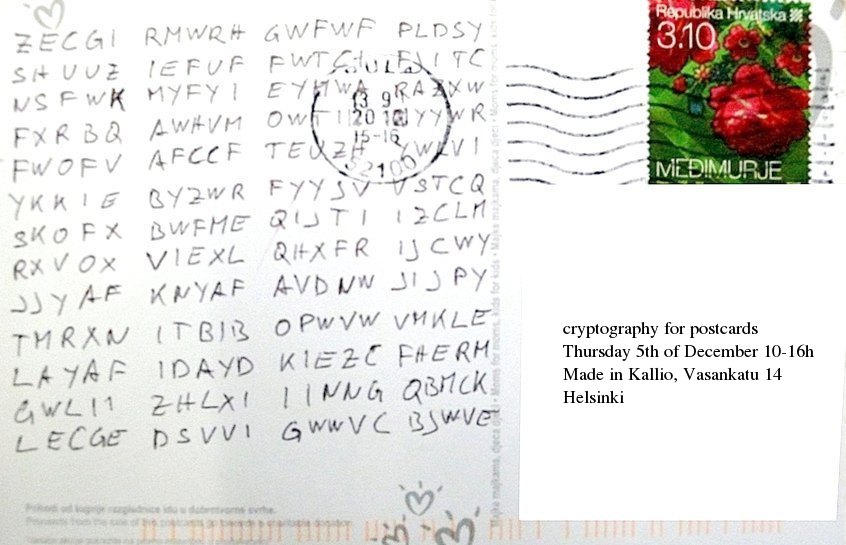 ZECGI RMWRH GWFWF PLDSY
SHUUZ IEFUF
NSFWK MYFYI RAZXW
FXRBQ AWHVM
FWOFV AFCCF TEUZH YWLVI
YKKIE BYZWR FYYSV VSTCQ
SKOFX BWFME QIJTI IZCLM
RXVOX VIEXL QHXFR IJCWY
JJYAF KNYAF AVDNW JIJPY
TMRXN ITBIB OPWVW VMKLE
LAYAF IDAYD KIEZC FHERM
GWLII ZHLXI IINNG QBMCK
LECGE DSVVI GWWVC BJWVE
PULA
13 9
15-16
52100
Republika Hrvatska
3.10
MEĐIMURJE
cryptography for postcards
Thursday 5th of December 10-16h
Made in Kallio, Vasankatu 14
Helsinki
Prihodi od kupnje razglednice idu u dobrotvorne svrhe.
Majke majkama, djeca djeci • Moms for moms, kids for kids